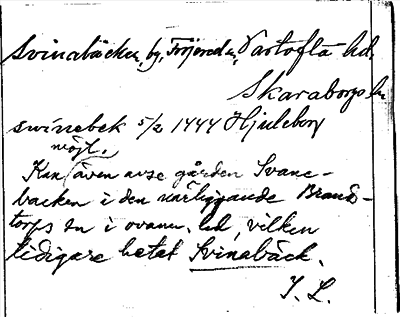 Svinabäcken, by, Fröjereds sn, Vartofta hd,
Skaraborgs län
swinebek 5/2 1444 Hjuleberg
möjl.
Kan även avse gården Svane-
backen i den närliggande Brands-
torps sn i ovann. hd, vilken
tidigare hetat Svinabäck.
I. L.